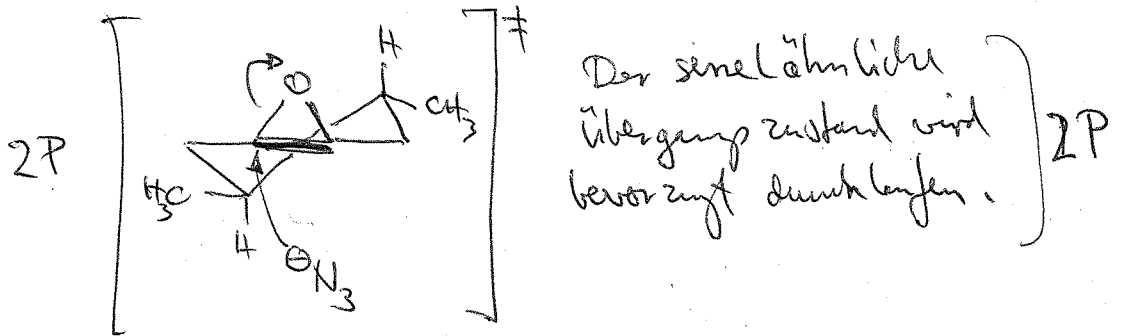 2P
‡
H
O
CH3
H3C
H
⊖N3
Der sesselähnliche
Übergangszustand wird
bevorzugt durchlaufen.
2P